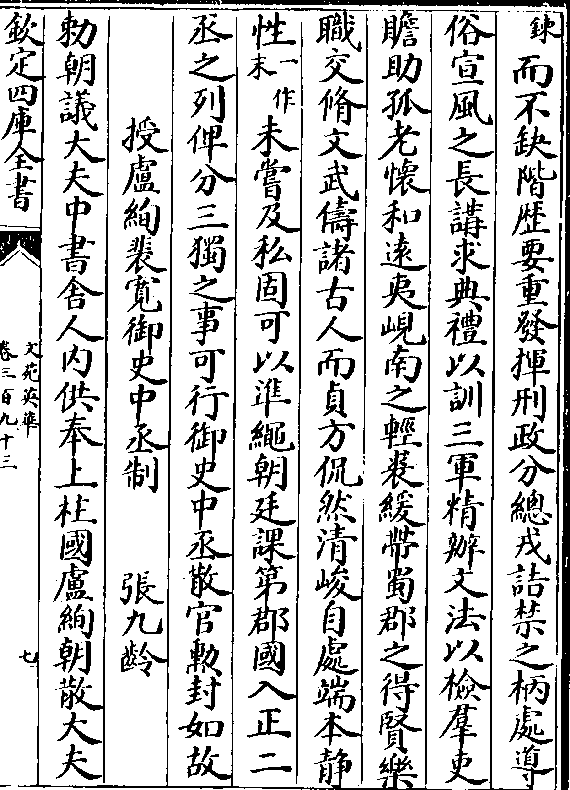 錬而不缺階歴要重發揮刑政分總戎詰禁之柄處導
俗宣風之長講求典禮以訓三軍精辦文法以檢羣吏
贍助孤老懷和遠夷峴南之輕裘緩帶蜀郡之得賢樂
職交脩文武儔諸古人而貞方侃然清峻自處端本静
性一作末未嘗及私固可以準繩朝廷課第郡國入正二
丞之列俾分三獨之事可行御史中丞散官勲封如故
授盧絢裴寛御史中丞制 張九齡
勅朝議大夫中書舎人内供奉上柱國盧絢朝散大夫
欽定四庫全書
文苑英華
卷三百九十三
七